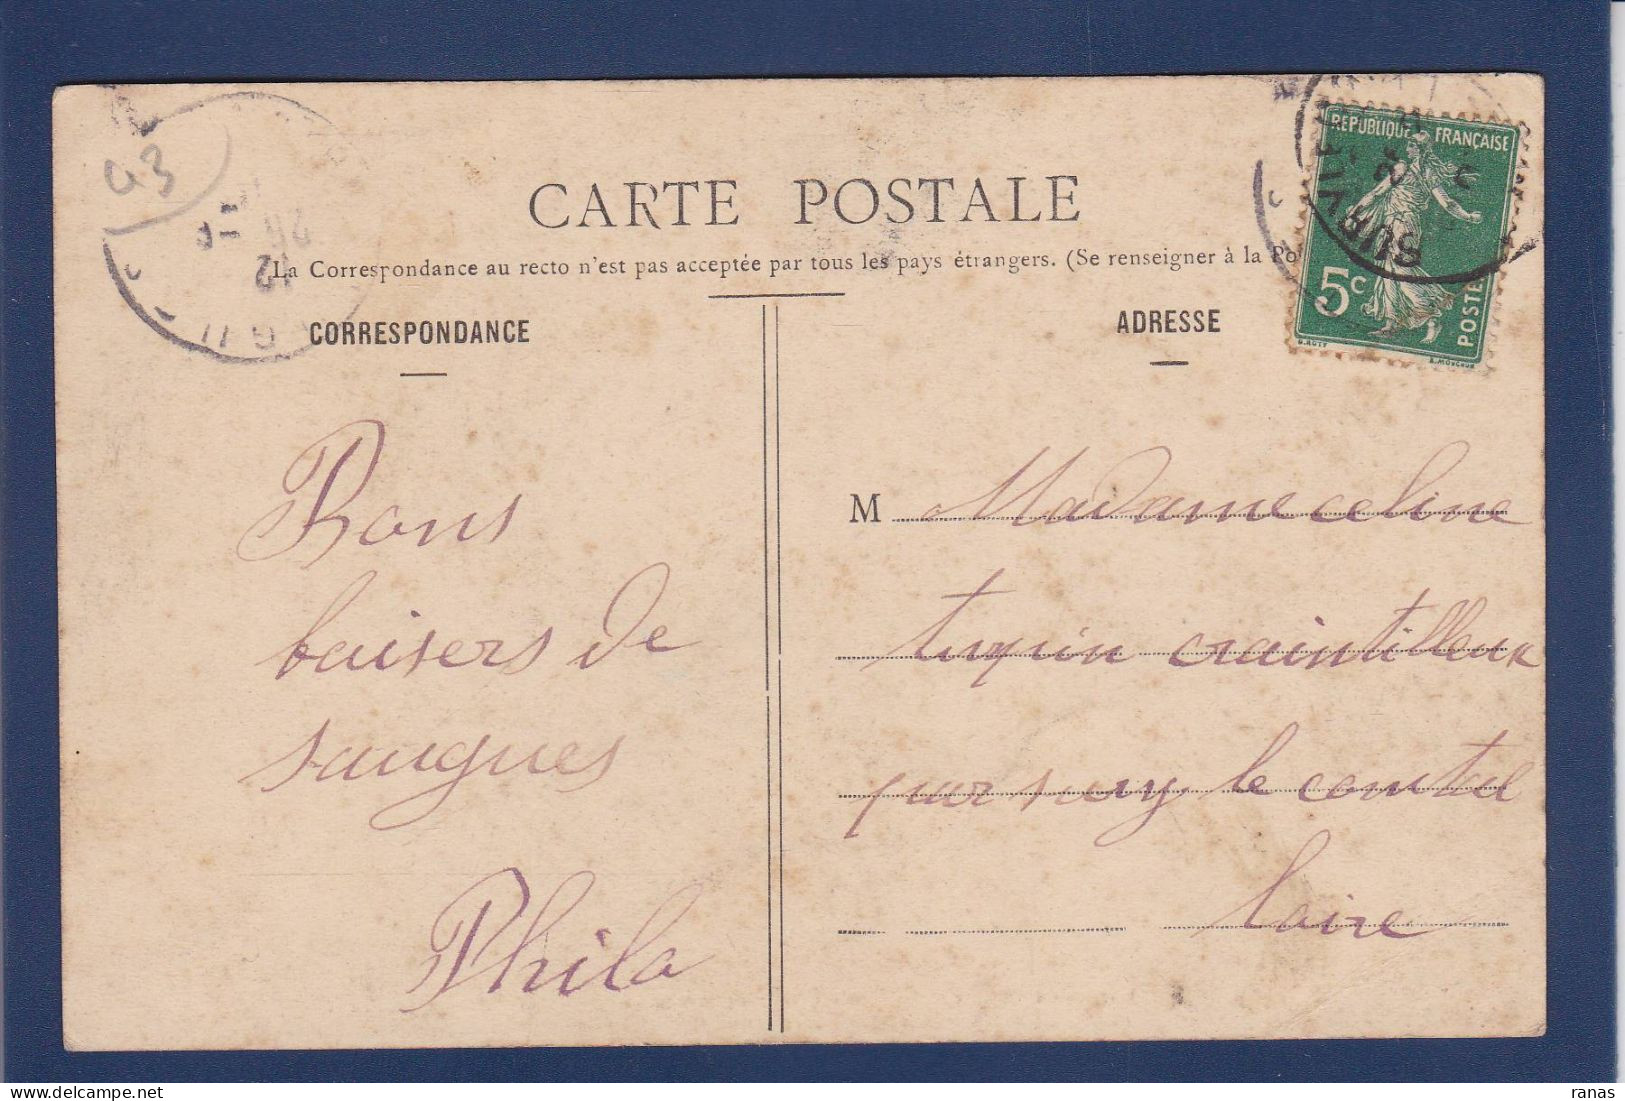 43
CARTE POSTALE
La Correspondance au recto n'est pas acceptée par tous les pays étrangers. (Se renseigner à la Po
CORRESPONDANCE
ADRESSE
RÉPUBLIQUE FRANÇAISE
5c
POSTES
SUR VIE
12
Bons
baisers de
saugues
Phila
M Madame celine
tupin craintilleux
par sury le comtal
loire
ranas